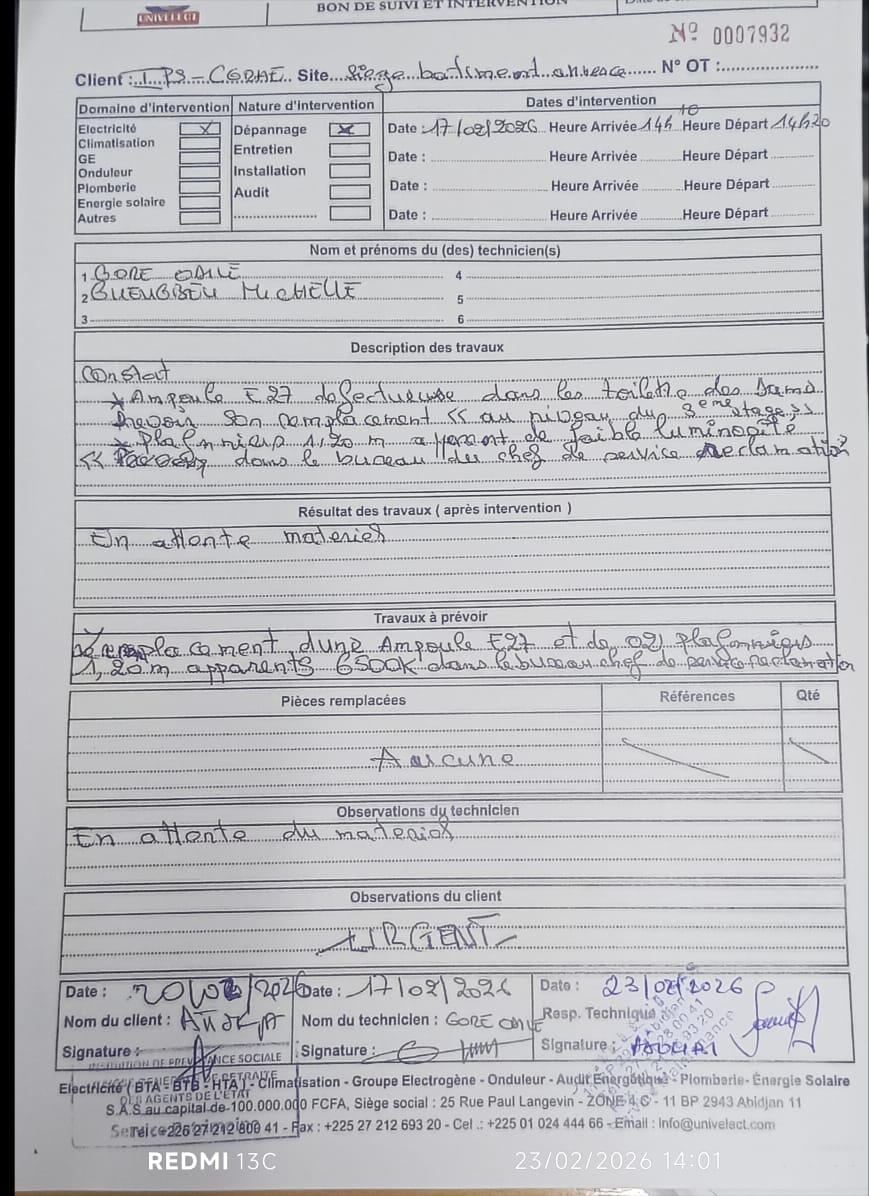 UNIVELECT
BON DE SUIVI ET INTERVENTION
Nº 0007932
Client : IPS-CGRAE Site Siège batiment annexe N° OT :
Domaine d'intervention Nature d'intervention Dates d'intervention
Electricité X Dépannage X Date : 17/02/2026 Heure Arrivée 14h10 Heure Départ 14h20
Climatisation
GE Entretien Date : Heure Arrivée Heure Départ
Onduleur Installation
Plomberie Audit Date : Heure Arrivée Heure Départ
Energie solaire
Autres Date : Heure Arrivée Heure Départ
Nom et prénoms du (des) technicien(s)
1 GORE ODILE 4
2 GUEUGBEU MICHELLE 5
3 6
Description des travaux
Constat
* Ampoule E27 defectueuse dans les toilette des Dams
Prevoir son remplacement << au niveau du 3eme etage >>
* Plafonniers 1.20 m apparent de faible luminosité
<< dans le bureau du chef de service Reclamation
Résultat des travaux ( après intervention )
En attente materiel
Travaux à prévoir
remplacement d'une Ampoule E27 et de 02 plafonniers
1,20m apparents 6500K dans le bureau chef de service reclamation
Pièces remplacées Références Qté
Aucune
Observations du technicien
En attente du materiel
Observations du client
URGENT
Date : 2026 Date : 17/02/2026 Date : 23/02/2026
Nom du client : Nom du technicien : GORE ODILE Resp. Technique
Signature : Signature : Signature :
INSTITUTION DE PREVOYANCE SOCIALE
DES AGENTS DE L'ETAT
Electricité ( BTA - BTB - HTA ) - Climatisation - Groupe Electrogène - Onduleur - Audit Énergétique - Plomberie- Énergie Solaire
S.A.S au capital de 100.000.000 FCFA, Siège social : 25 Rue Paul Langevin - ZONE 4 C - 11 BP 2943 Abidjan 11
Tel : +225 27 212 800 41 - Fax : +225 27 212 693 20 - Cel .: +225 01 024 444 66 - Email : Info@univelect.com
REDMI 13C 23/02/2026 14:01